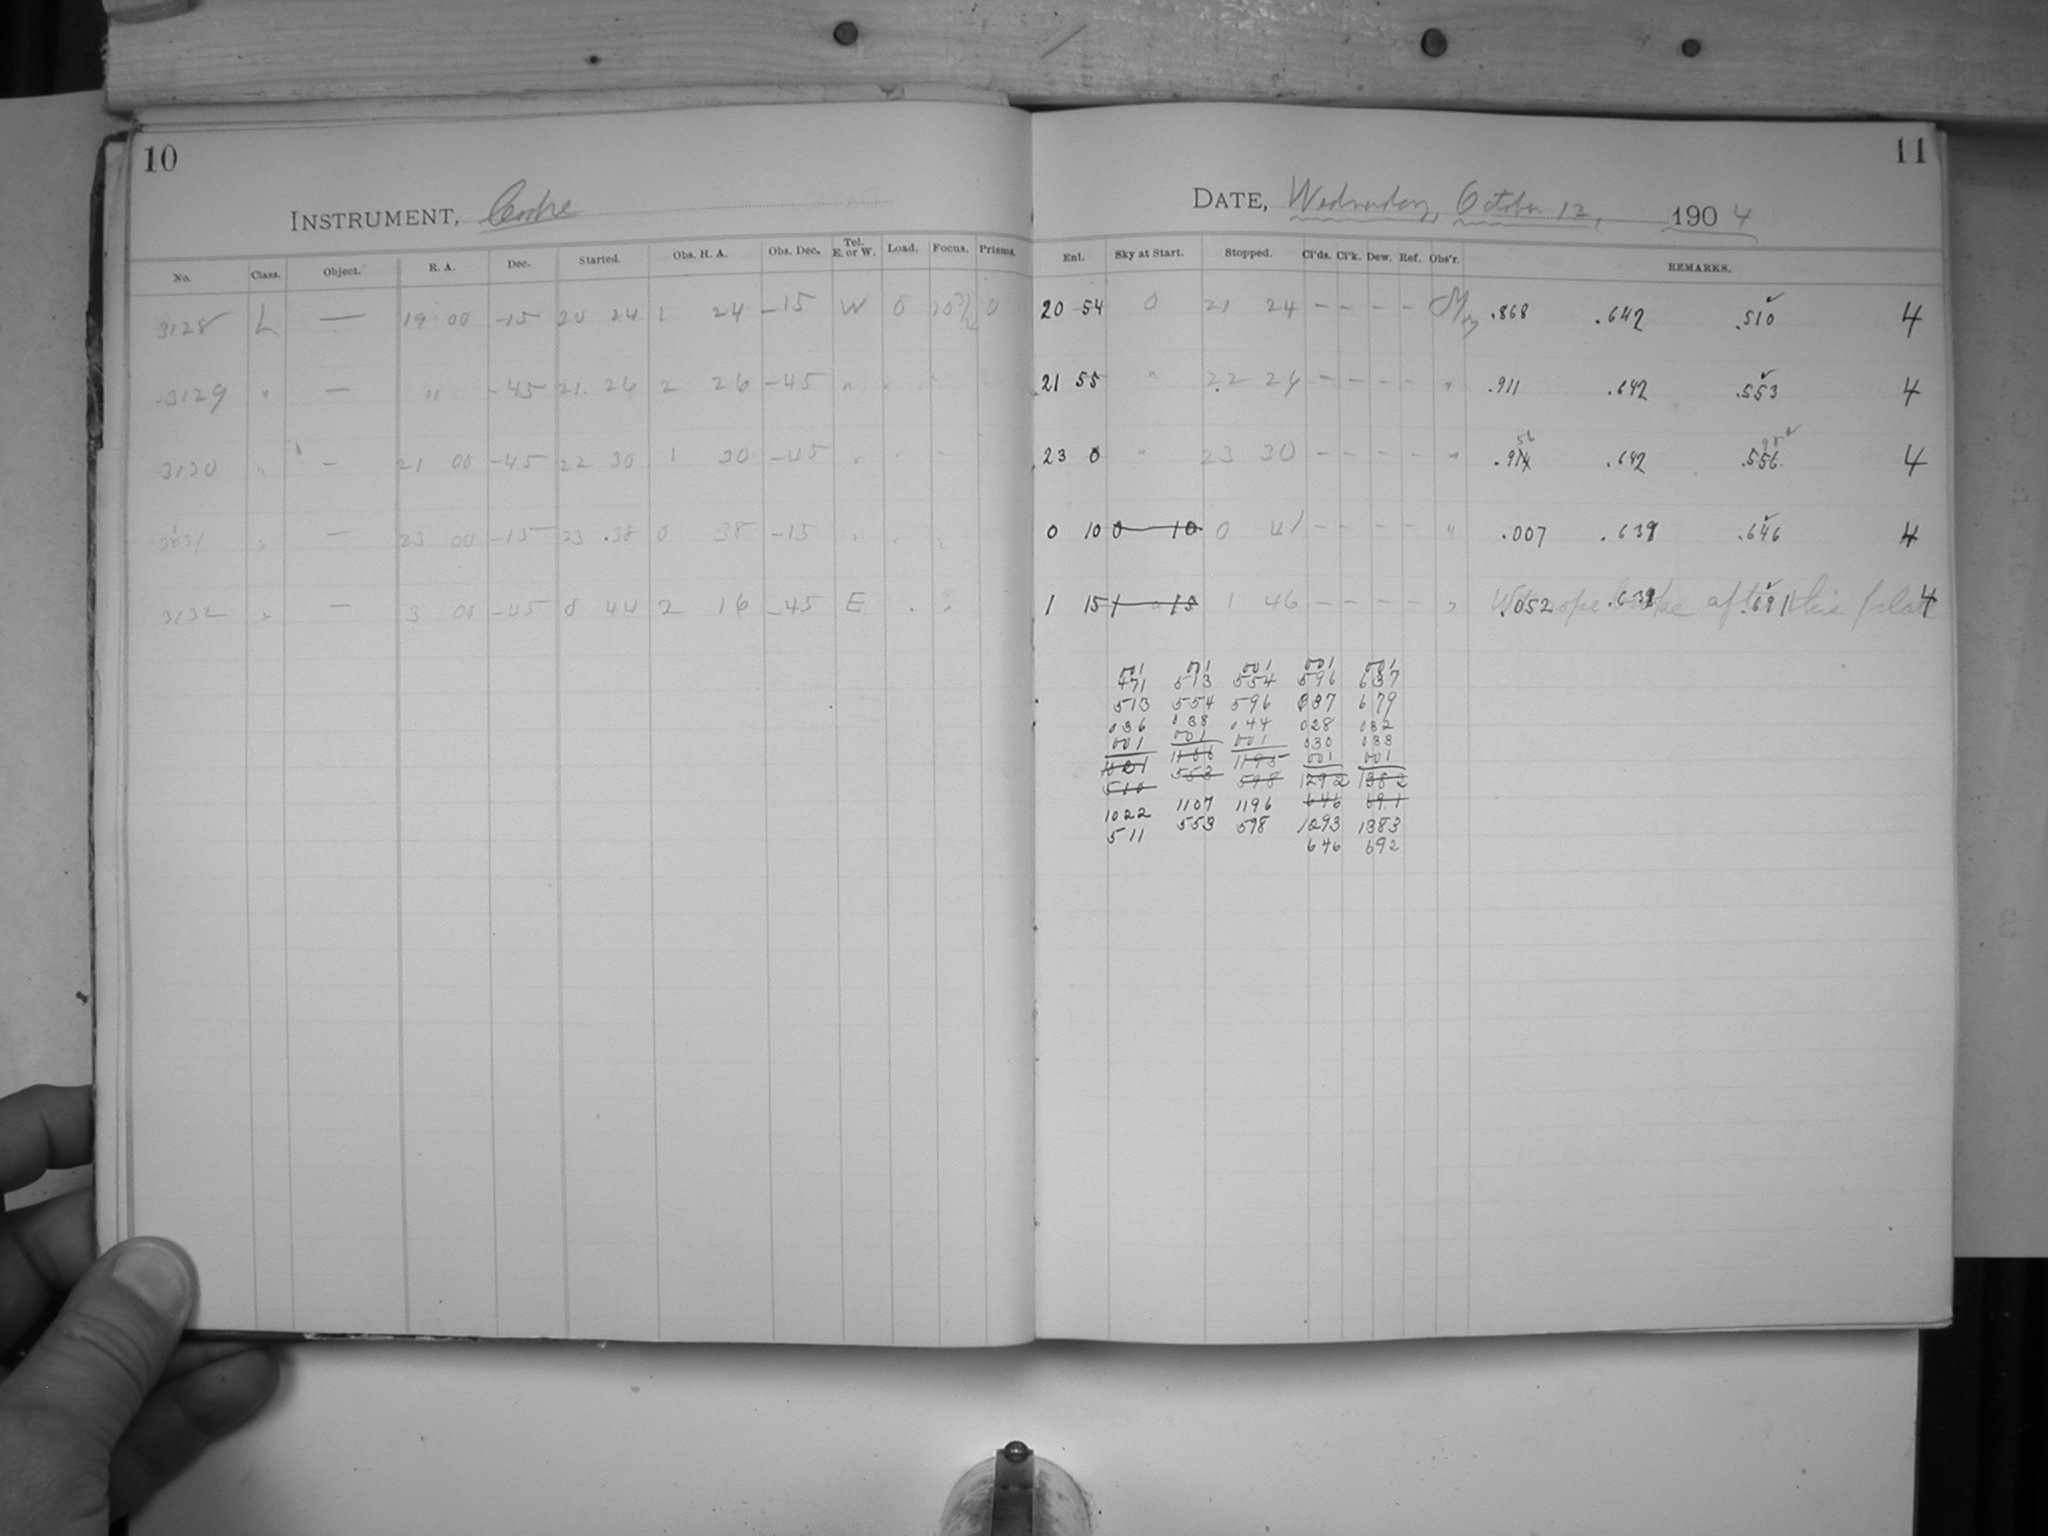 10
11
INSTRUMENT, Cooke
DATE, Wednesday, October 12, 1904
No. Class. Object. R. A. Dec. Started. Obs. H. A. Obs. Dec. Tel. E. or W. Load. Focus. Prisms. Enl. Sky at Start. Stopped. Cl'ds. Cl'k. Dew. Ref. Obs'r. REMARKS.
3128 L — 19 00 -15 20 24 1 24 -15 W 0 0 20 54 0 21 24 - - - - .868 .642 .510 4
3129 " — " -45 21 26 2 26 -45 " 21 55 " 22 26 - - - - " .911 .642 .553 4
3130 " — 21 00 -45 22 30 1 30 -45 " 23 0 " 23 30 - - - - " .914 56 .642 .556 98 4
3131 " — 23 00 -15 23 38 0 38 -15 " 0 10 0 10 0 41 - - - - " .007 .639 .646 4
3132 " — 3 00 -45 0 44 2 16 -45 E 1 15 1 15 1 46 - - - - " .052 .639 .691 4
rope broke after this plate
001 001 001 001 001
471 513 554 596 637
513 554 596 637 679
036 038 044 028 032
001 001 001 030 033
1021 1106 1195 001 001
510 553 598 1292 1382
1022 1107 1196 646 691
511 553 598 1293 1383
646 692